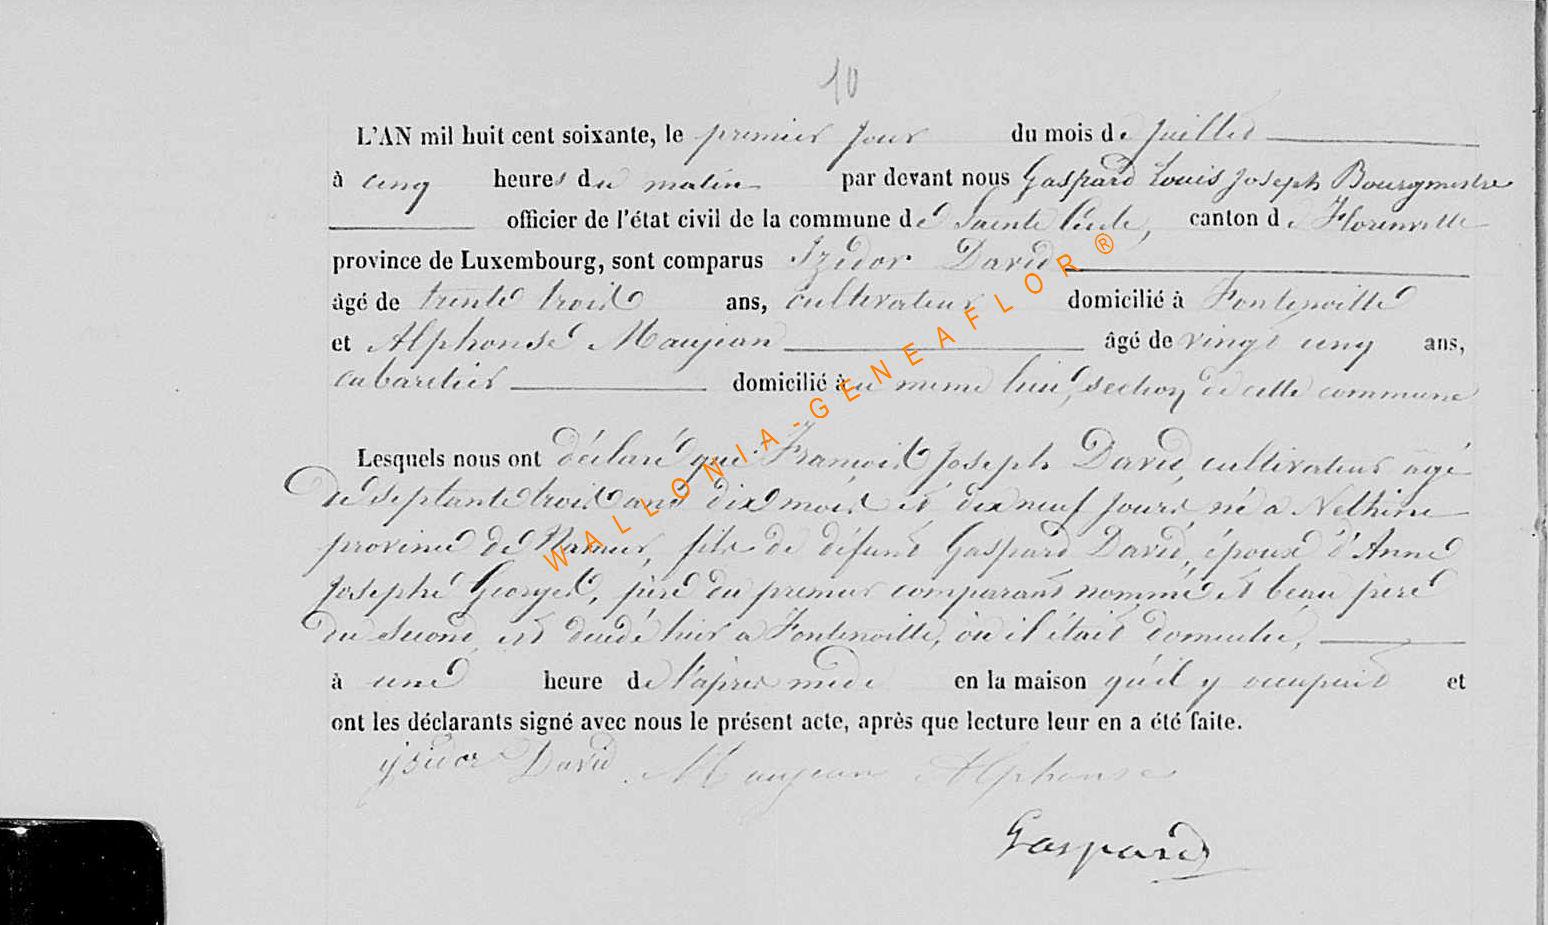 10
L'AN mil huit cent soixante, le premier jour du mois de juillet
à cinq heures du matin par devant nous Gaspard Louis Joseph Bourgmestre
officier de l'état civil de la commune de Sainte Cécile, canton de Florenville
province de Luxembourg, sont comparus Izidor David
âgé de trente trois ans, cultivateur domicilié à Fontenoille
et Alphonse Maujean âgé de vingt cinq ans,
cabaretier domicilié au même lieu, section de cette commune
Lesquels nous ont déclaré que François Joseph David, cultivateur âgé
de septante trois ans dix mois et dix neuf jours, né a Nethine
province de Namur, fils de défunt Gaspard David, époux d'Anne
Josephe Georges, père du premier comparant nommé et beau père
du second, est décédé hier a Fontenoille, où il était domicilié,
à une heure de l'après midi en la maison qu'il y occupait et
ont les déclarants signé avec nous le présent acte, après que lecture leur en a été faite.
ysidor David Maujean Alphonse
Gaspard
WALLONIA-GENEAFLOR®